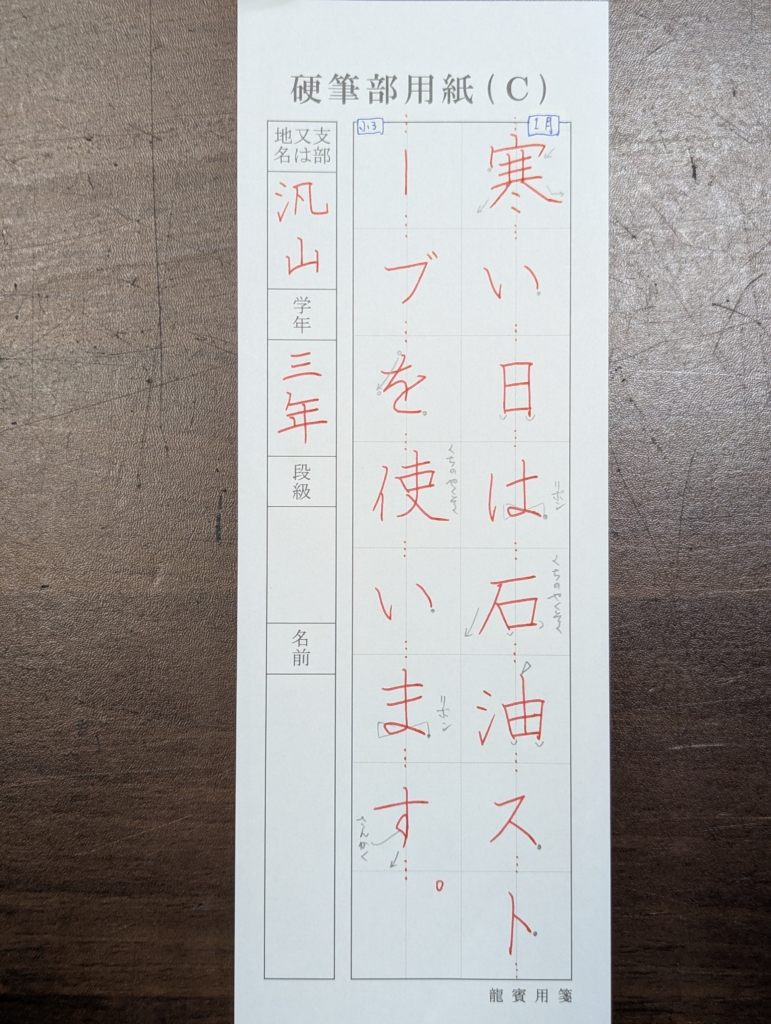 硬筆部用紙(C)
1月
寒い日は石油スト
リボン
くちのやくそく
小3
ーブを使います。
くちのやくそく
リボン
さんかく
支部又は地名
汎山
学年
三年
段級
名前
龍賓用箋